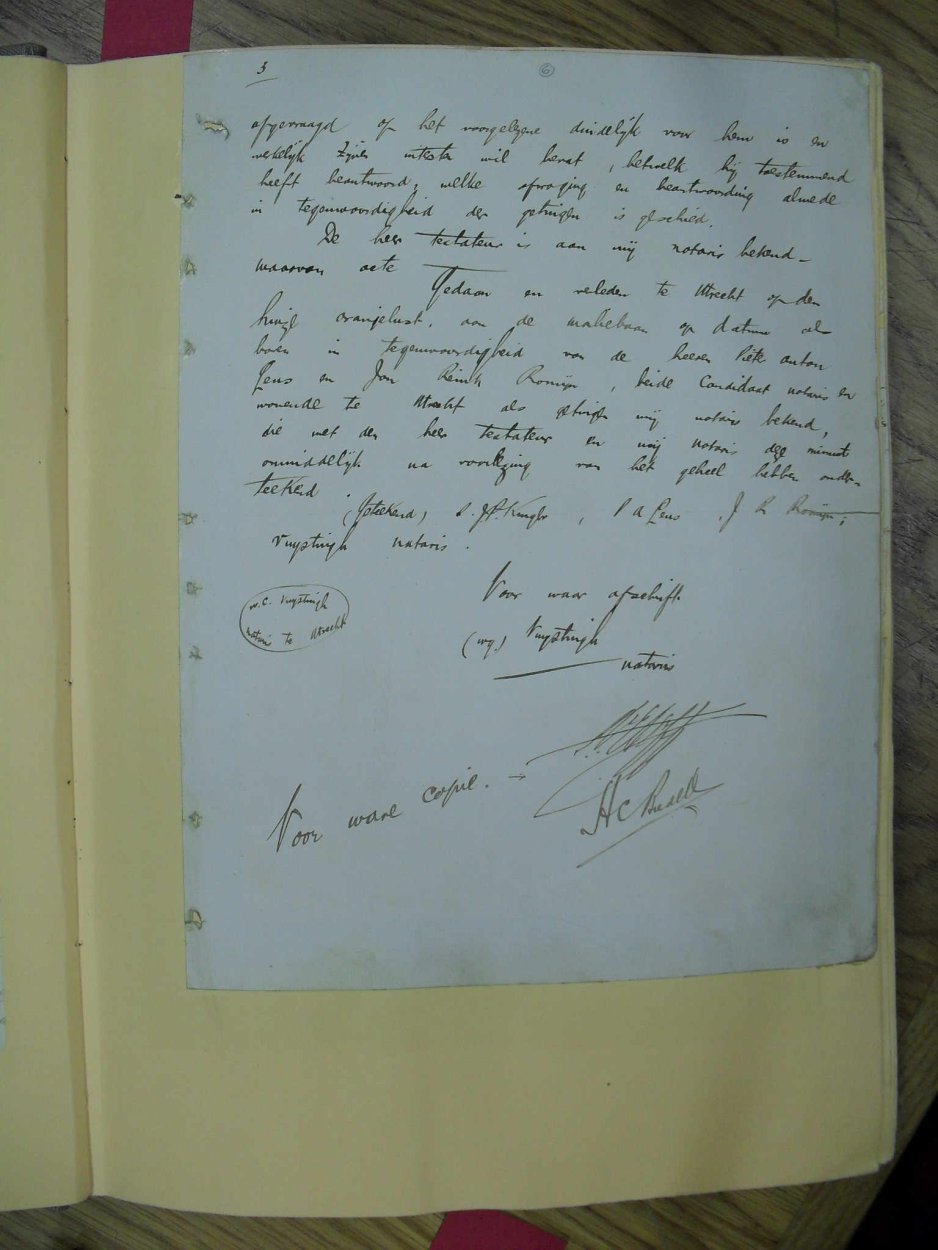 3
6
afgevraagd of het voorgelezene duidelijk voor hem is en
werkelijk zijnen uitersten wil bevat, hetwelk hij toestemmend
heeft beantwoord, welke afvraging en beantwoording almede
in tegenwoordigheid der getuigen is geschied.
De heer testateur is aan mij notaris bekend –
waarvan acte
Gedaan en verleden te Utrecht op den
huize oranjelust, aan de maliebaan op datum als
boven in tegenwoordigheid van de heeren Piete anton
Lens en Jan Romijn, beide Candidaat notaris en
wonende te Utrecht als getuigen mij notaris bekend,
die met den heer testateur en mij notaris deze minuut
onmiddelijk na voorlezing van het geheel hebben onder-
teekend
(Geteekend) S. J. P. Kruger, P A Lens, J R Romijn;
Vuystingh notaris.
W.C. Vuystingh
notaris te Utrecht
Voor waar afschrift
(wg.) Vuystingh
notaris
Voor ware copie.
H C